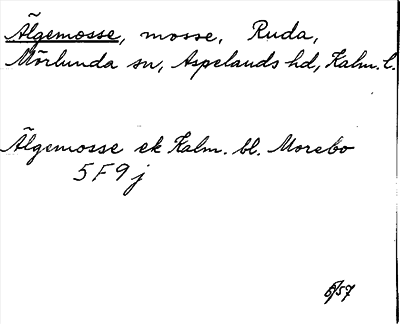 Älgemosse, mosse, Ruda,
Mörlunda sn, Aspelands hd, Kalm. l.
Älgemosse ek Kalm. bl. Morebo
5 F 9 j